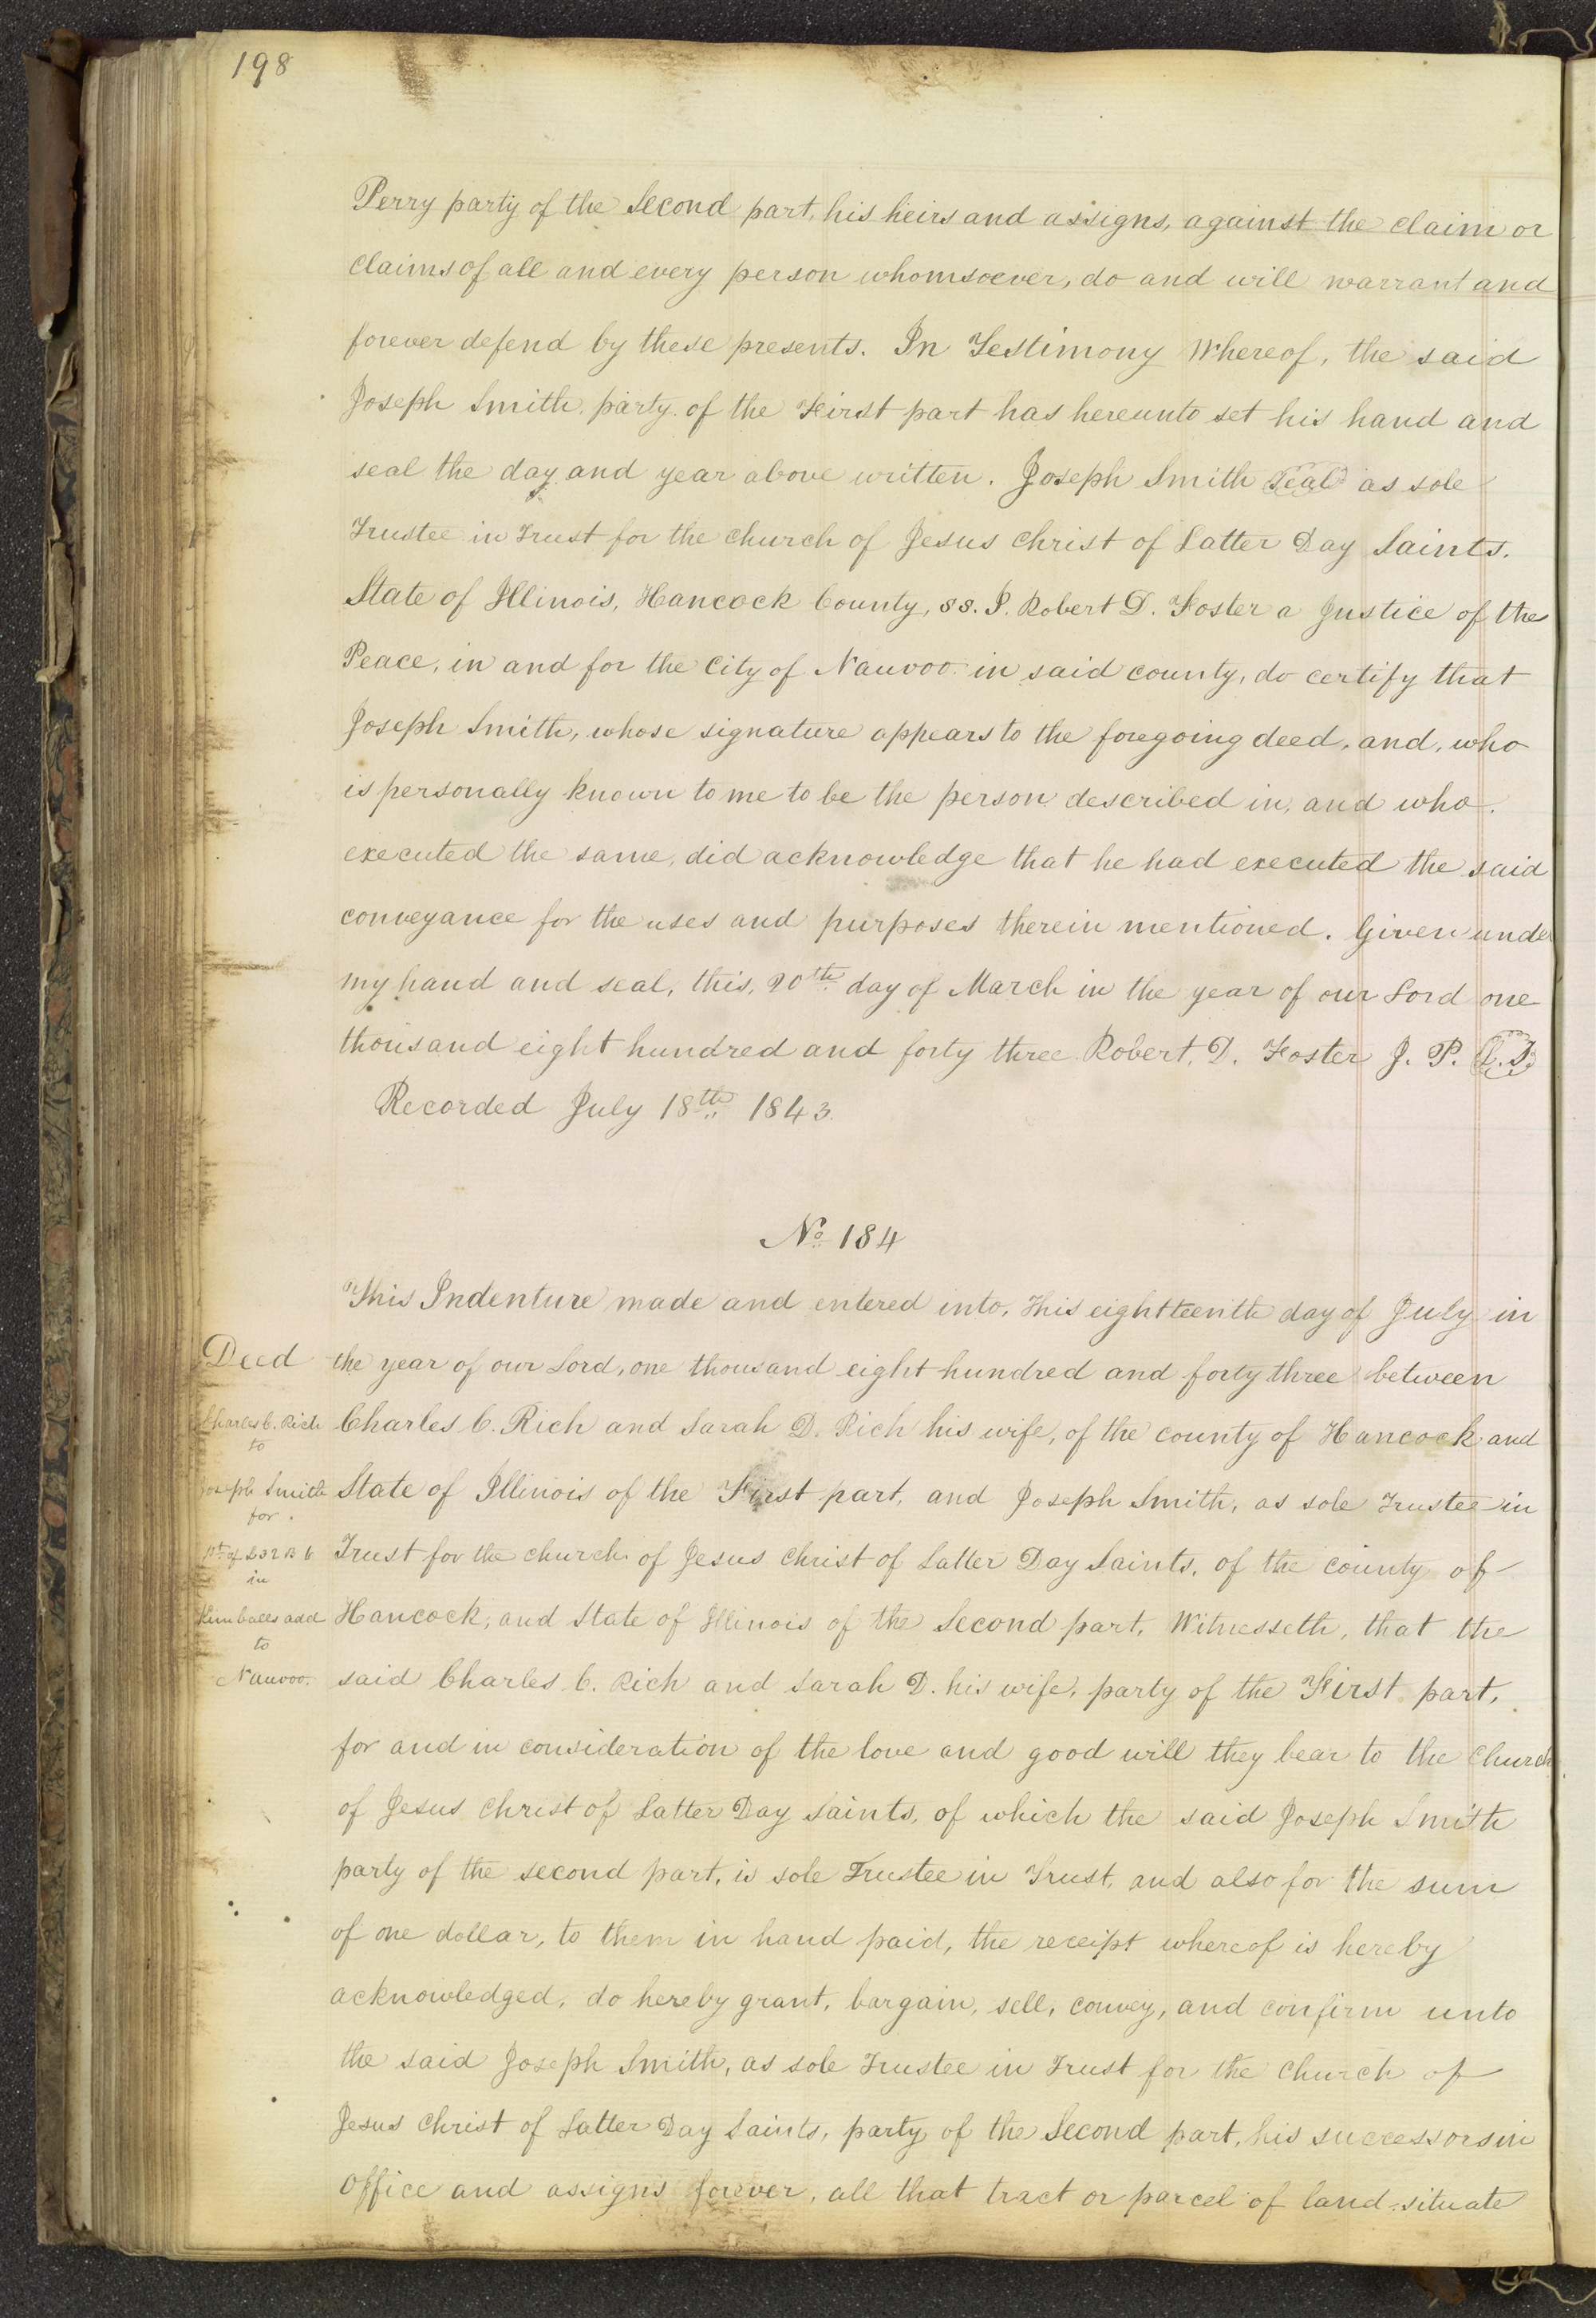 198
Perry party of the Second part, his heirs and assigns, against the claim or
claims of all and every person whomsoever, do and will warrant and
forever defend by these presents. In Testimony Whereof, the said
Joseph Smith, party of the First part has hereunto set his hand and
seal the day and year above written. Joseph Smith Seal as sole
Trustee in Trust for the church of Jesus Christ of Latter Day Saints.
State of Illinois, Hancock County, ss. I. Robert D. Foster a Justice of the
Peace, in and for the City of Nauvoo in said county, do certify that
Joseph Smith, whose signature appears to the foregoing deed, and, who
is personally known to me to be the person described in, and who.
executed the same, did acknowledge that he had executed the said
conveyance for the uses and purposes therein mentioned. Given under
my hand and seal, this, 20th day of March in the year of our Lord one
thousand eight hundred and forty three Robert. D. Foster J. P. L.S.
Recorded July 18th 1843.
No 184
This Indenture made and entered into, this eightteenth day of July in
Deed
the year of our Lord, one thousand eight hundred and forty three between
Charles C. Rich
to
Charles C. Rich and Sarah D. Rich his wife, of the county of Hancock and
Joseph Smith
for.
State of Illinois of the First part, and Joseph Smith, as sole Trustee in
Pt of L 32 B 6
in
Trust for the church of Jesus Christ of Latter Day Saints, of the county of
Kimballs add
to
Hancock, and State of Illinois of the Second part, Witnesseth, that the
Nauvoo.
said Charles C. Rich and Sarah D. his wife, party of the First part,
for and in consideration of the love and good will they bear to the Church
of Jesus Christ of Latter Day Saints, of which the said Joseph Smith
party of the second part, is sole Trustee in Trust, and also for the sum
of one dollar, to them in hand paid, the receipt whereof is hereby
acknowledged, do hereby grant, bargain, sell, convey, and confirm unto
the said Joseph Smith, as sole Trustee in Trust for the Church of
Jesus Christ of Latter Day Saints, party of the Second part, his successors in
Office and assigns forever, all that tract or parcel of land situate